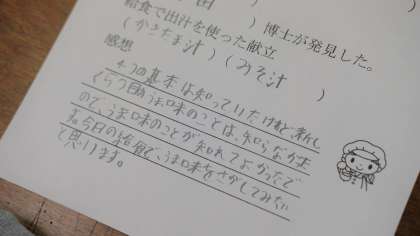 田 ） 博士が発見した。
給食で出汁を使った献立
（かきたま汁）（みそ汁 ）
感想
4つの基本は知っていたけれど、新し
くらつ目のうま味のことは、知らなかった
ので、うま味のことが知れてよかったで
す。今日の給食で、うま味をさがしてみたい
と思います。